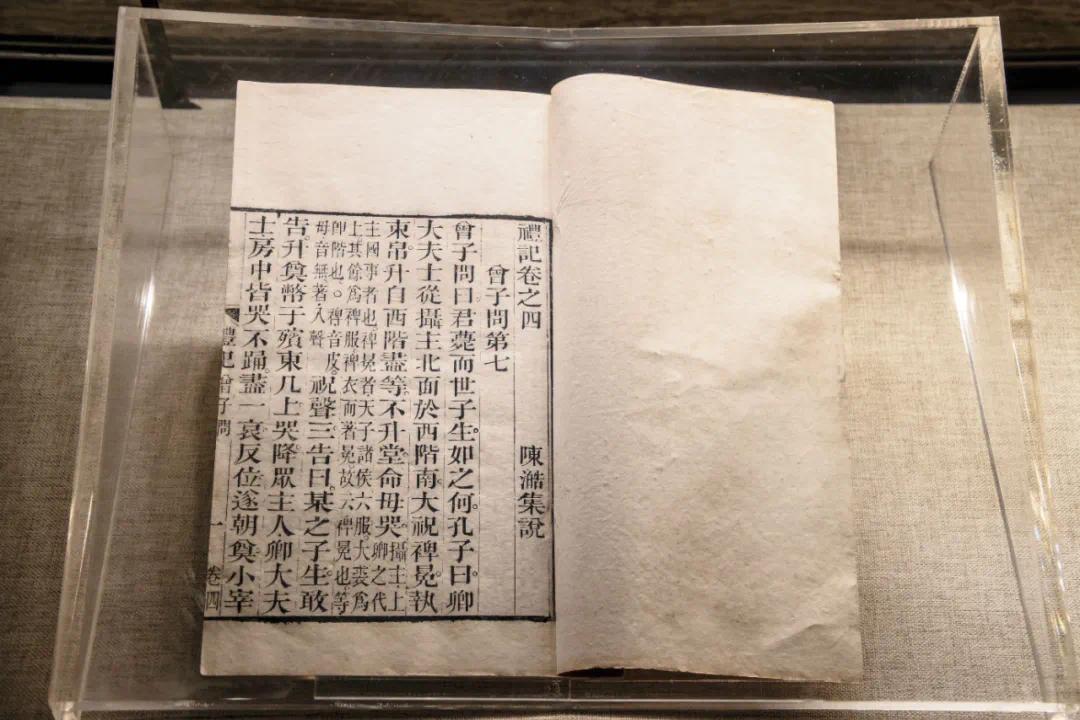 禮記卷之四 陳澔集說
曾子問第七
曾子問曰君薨而世子生。如之何。孔子曰卿
大夫士從攝主北面於西階南大祝裨冕。執
束帛。升自西階盡等。不升堂命毋哭。攝主上卿之代
主國事者也裨冕者天子諸侯六服大裘爲
上其餘爲裨服裨衣而著冕故云裨冕也等
即階也。裨音皮。
毋音無著入聲
祝聲三告曰。某之子生。敢
告。升奠幣于殯東几上哭。降。眾主人卿大夫
士房中皆哭不踊。盡一哀反位遂朝奠小宰
禮記 曾子問 一 卷四